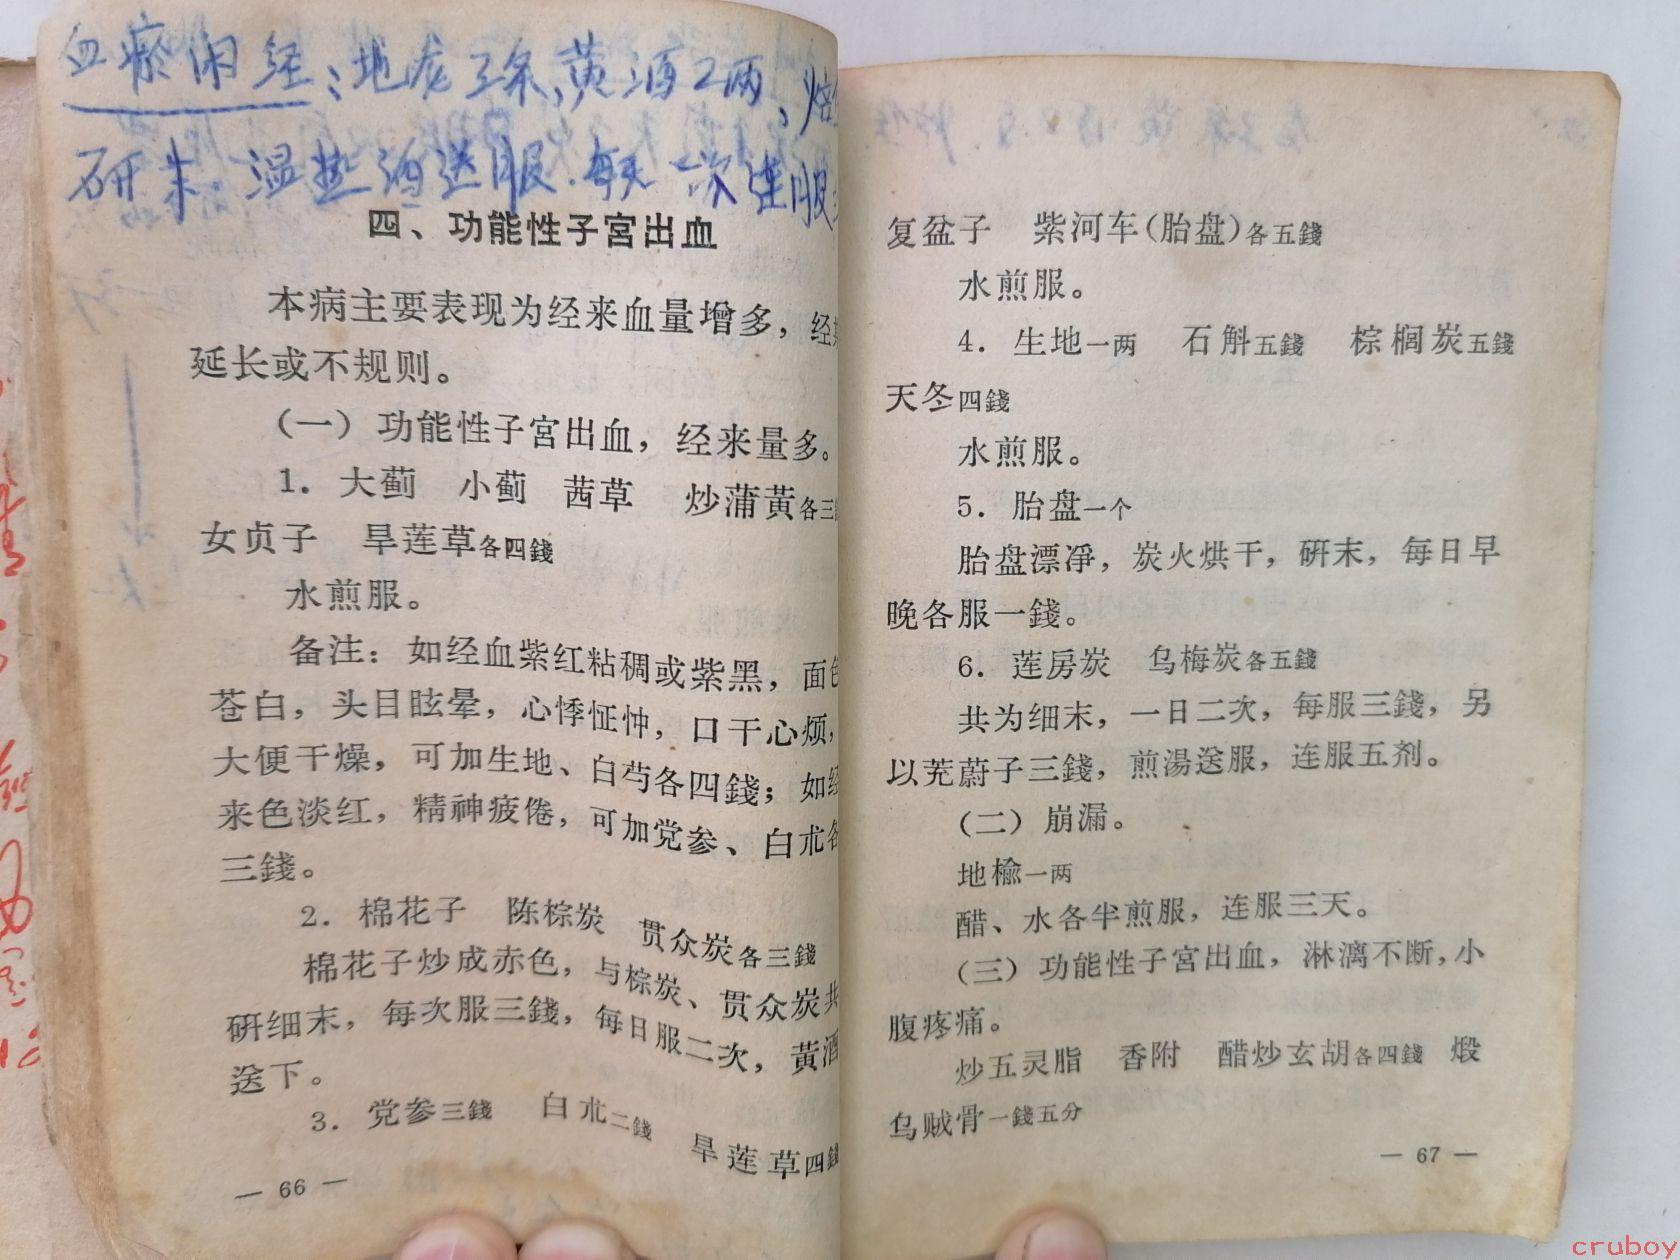 血瘀闭经:地龙3条,黄酒2两,焙
研末 温热酒送服.每天一次连服
四、功能性子宫出血
本病主要表现为经来血量增多,经期
延长或不规则。
(一)功能性子宫出血,经来量多。
1. 大蓟 小蓟 茜草 炒蒲黄各三錢
女贞子 旱莲草各四錢
水煎服。
备注:如经血紫红粘稠或紫黑,面色
苍白,头目眩晕,心悸怔忡,口干心烦,
大便干燥,可加生地、白芍各四錢;如经
来色淡红,精神疲倦,可加党参、白朮各
三錢。
2. 棉花子 陈棕炭 贯众炭各三錢
棉花子炒成赤色,与棕炭、贯众炭共
研细末,每次服三錢,每日服二次,黄酒
送下。
3. 党参三錢 白朮二錢 旱莲草四錢
— 66 —
复盆子 紫河车(胎盘)各五錢
水煎服。
4. 生地一两 石斛五錢 棕榈炭五錢
天冬四錢
水煎服。
5. 胎盘一个
胎盘漂净,炭火烘干,研末,每日早
晚各服一錢。
6. 莲房炭 乌梅炭各五錢
共为细末,一日二次,每服三錢,另
以茺蔚子三錢,煎湯送服,连服五剂。
(二)崩漏。
地榆一两
醋、水各半煎服,连服三天。
(三)功能性子宫出血,淋漓不断,小
腹疼痛。
炒五灵脂 香附 醋炒玄胡各四錢 煅
乌贼骨一錢五分
— 67 —
cruboy